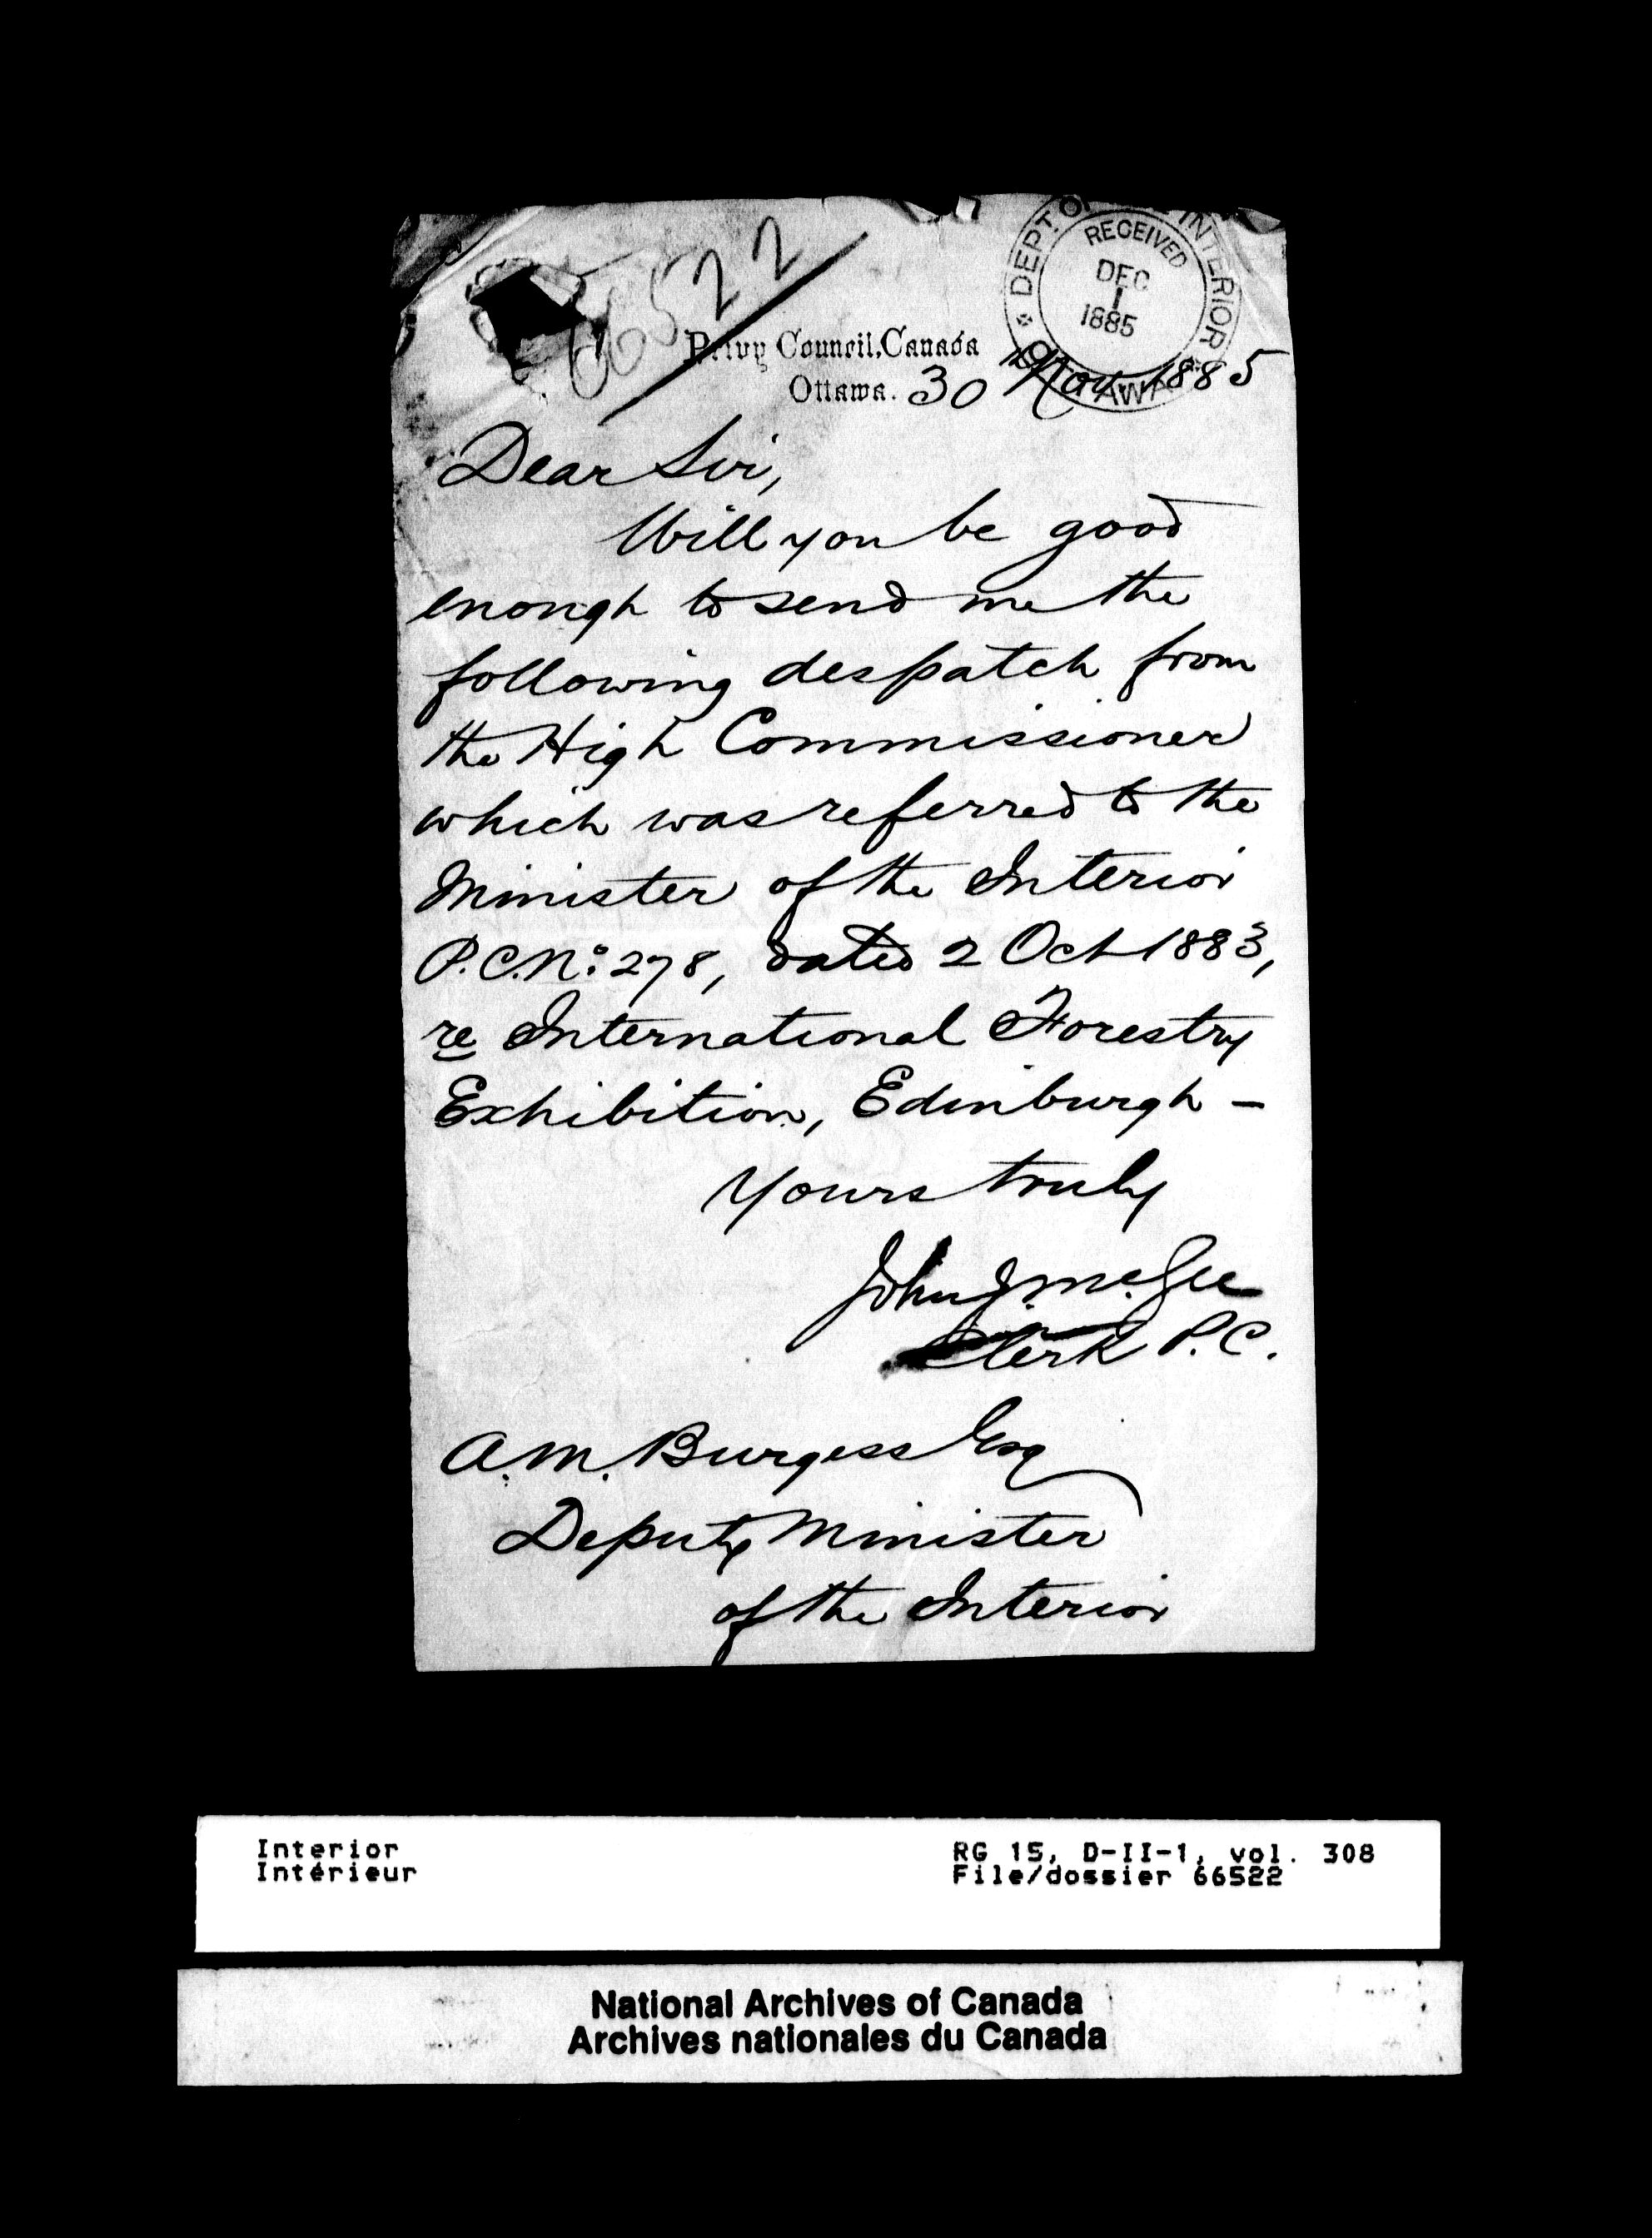 66522
DEPT. OF THE INTERIOR
RECEIVED
DEC
1
1885
OTTAWA
Privy Council, Canada
Ottawa. 30 Nov. 1885
Dear Sir,
Will you be good
enough to send me the
following despatch from
the High Commissioner
which was referred to the
Minister of the Interior
P.C. No: 278, dated 2 Oct 1883,
re International Forestry
Exhibition, Edinburgh –
Yours truly
John J. McGee
Clerk P.C.
A.M. Burgess Esq
Deputy Minister
of the Interior
Interior
Intérieur
RG 15, D-II-1, vol. 308
File/dossier 66522
National Archives of Canada
Archives nationales du Canada